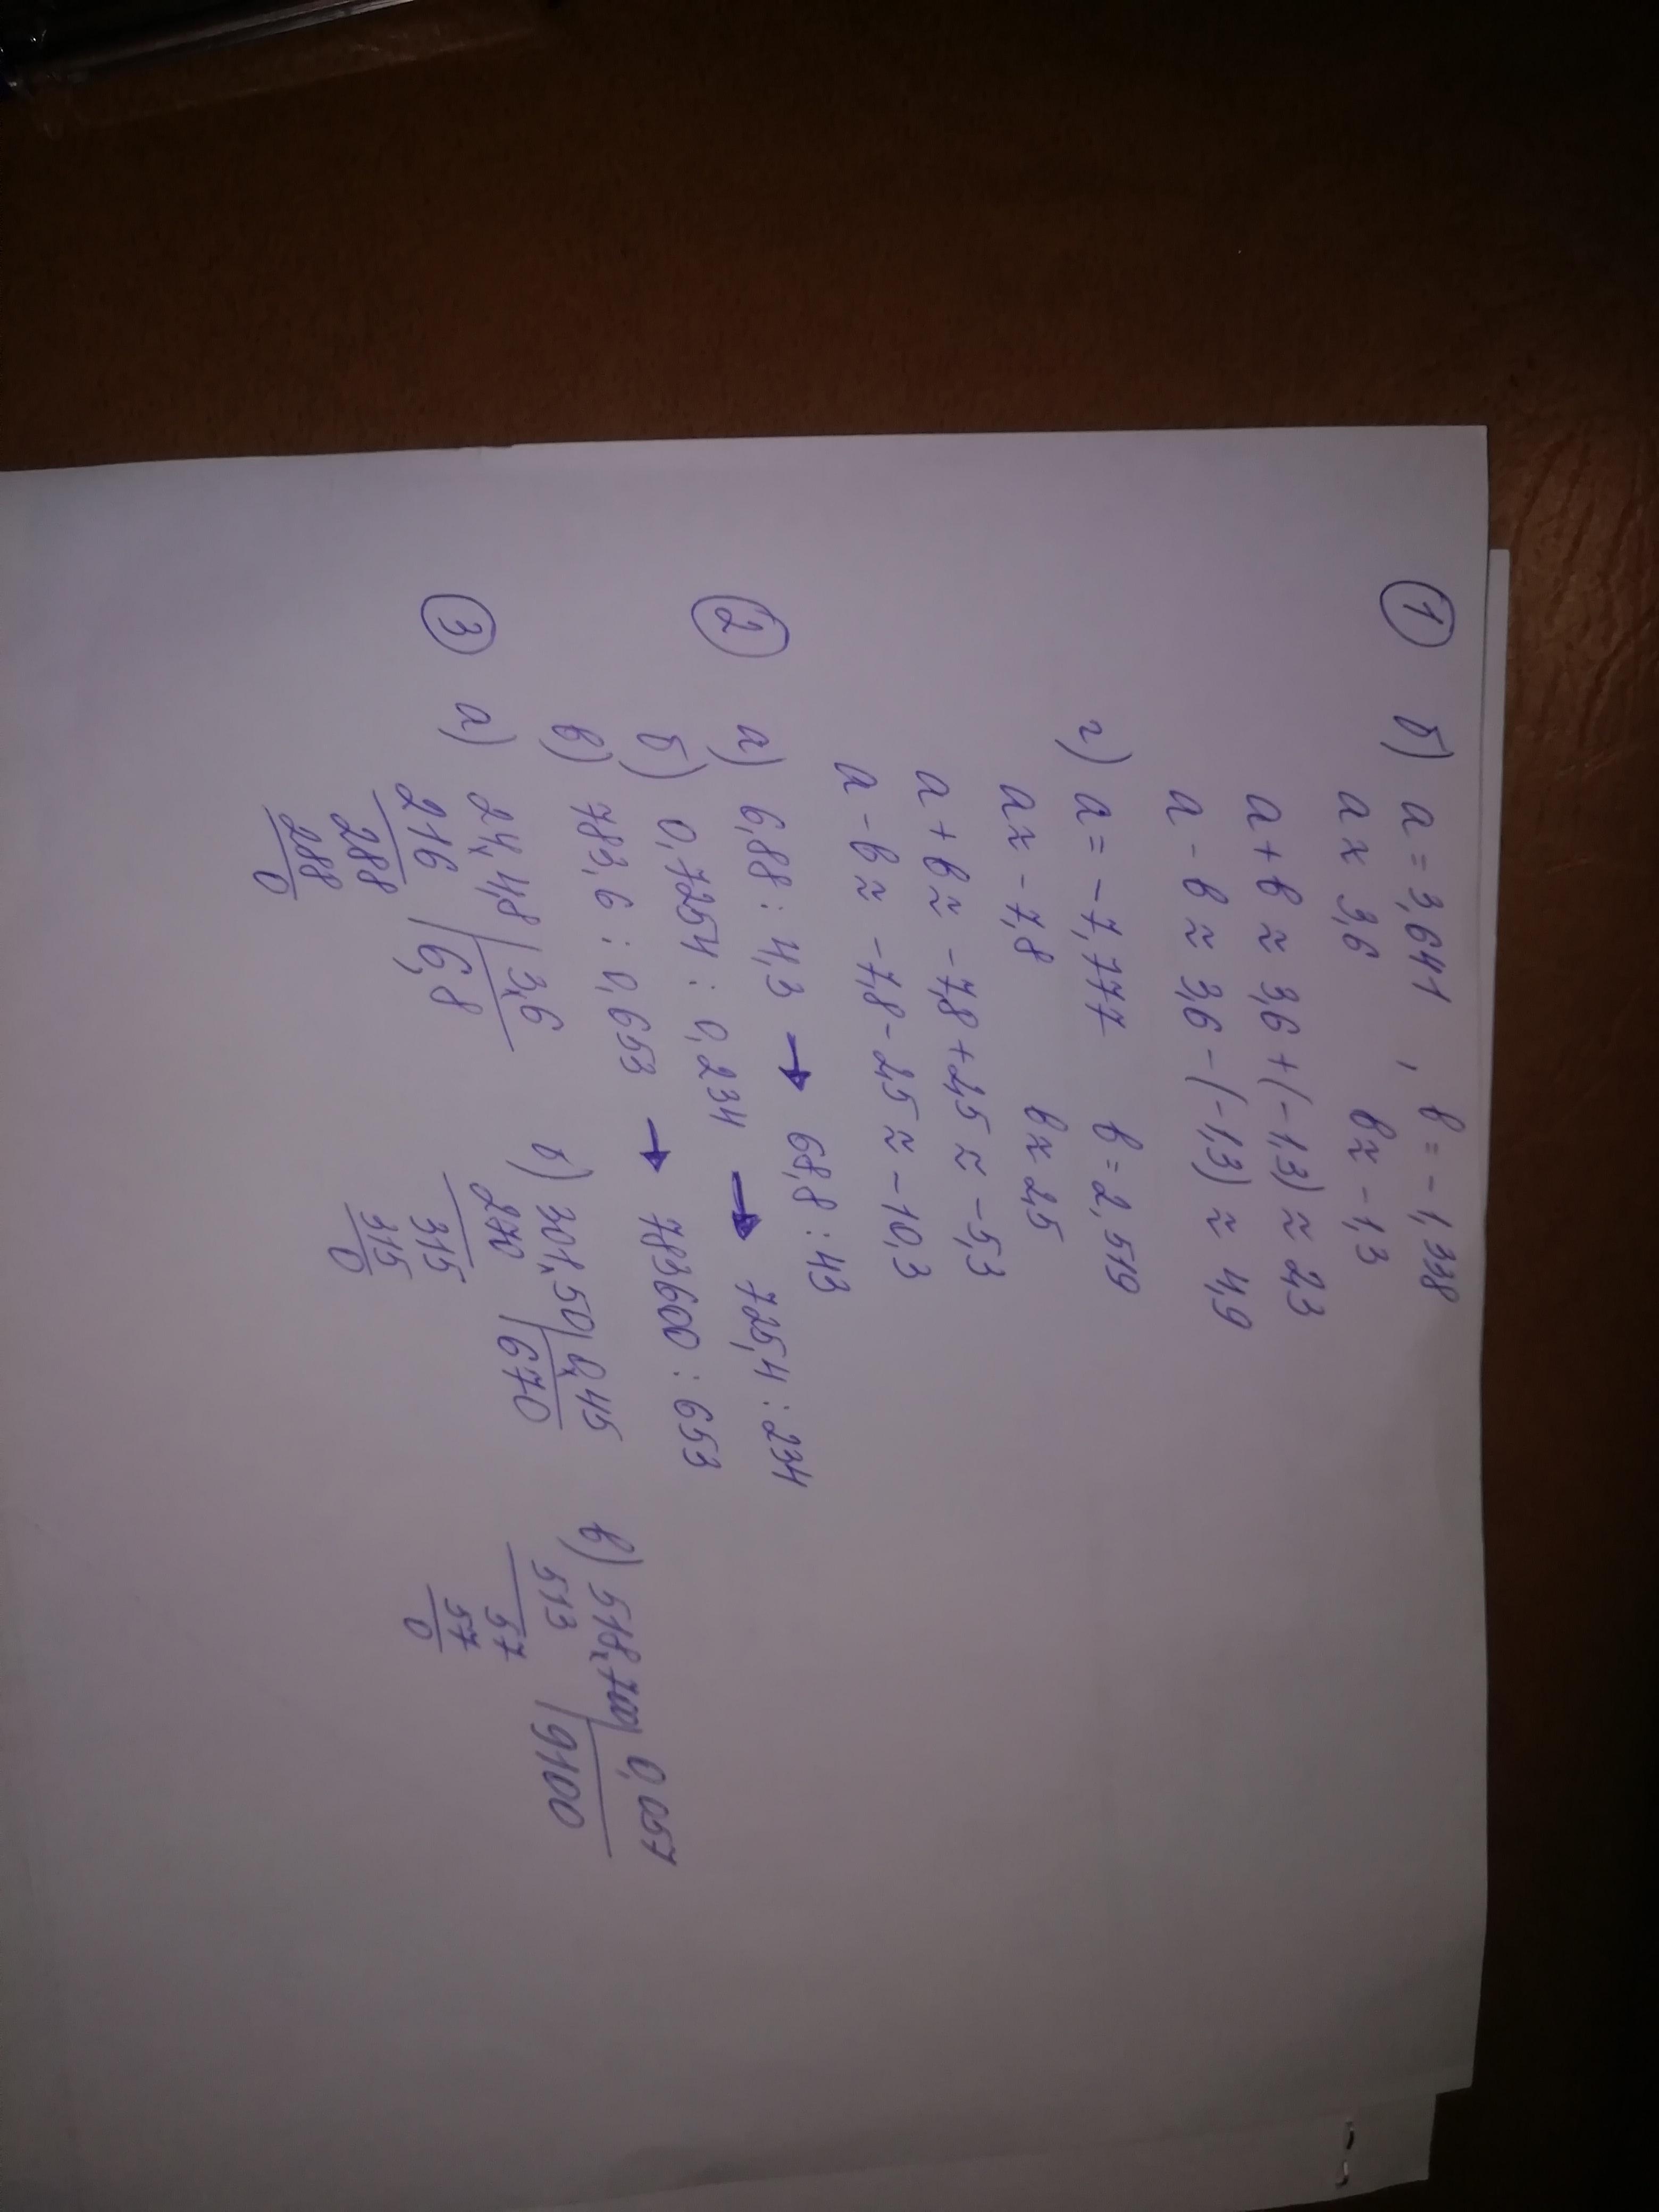 1 б) a = 3,641 , b = -1,338
a ≈ 3,6 b ≈ -1,3
a + b ≈ 3,6 + (-1,3) ≈ 2,3
a - b ≈ 3,6 - (-1,3) ≈ 4,9
г) a = -7,777 b = 2,519
a ≈ -7,8 b ≈ 2,5
a + b ≈ -7,8 + 2,5 ≈ -5,3
a - b ≈ -7,8 - 2,5 ≈ -10,3
2 а) 6,88 : 4,3 → 68,8 : 43
б) 0,7254 : 0,234 → 725,4 : 234
в) 783,6 : 0,653 → 783600 : 653
3 а) 24,48 | 3,6 б) 301,50 | 0,45 в) 518,700 | 0,057
216 | 6,8 270 | 670 513 | 9100
288 315 57
288 315 57
0 0 0